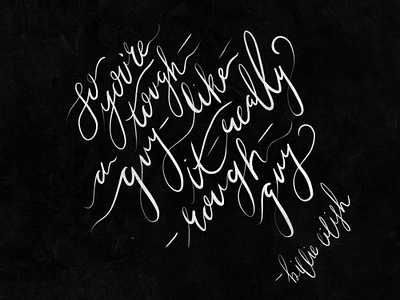 so you're
tough-
a guy- like-
it really
-rough-
guy
-billie eilish